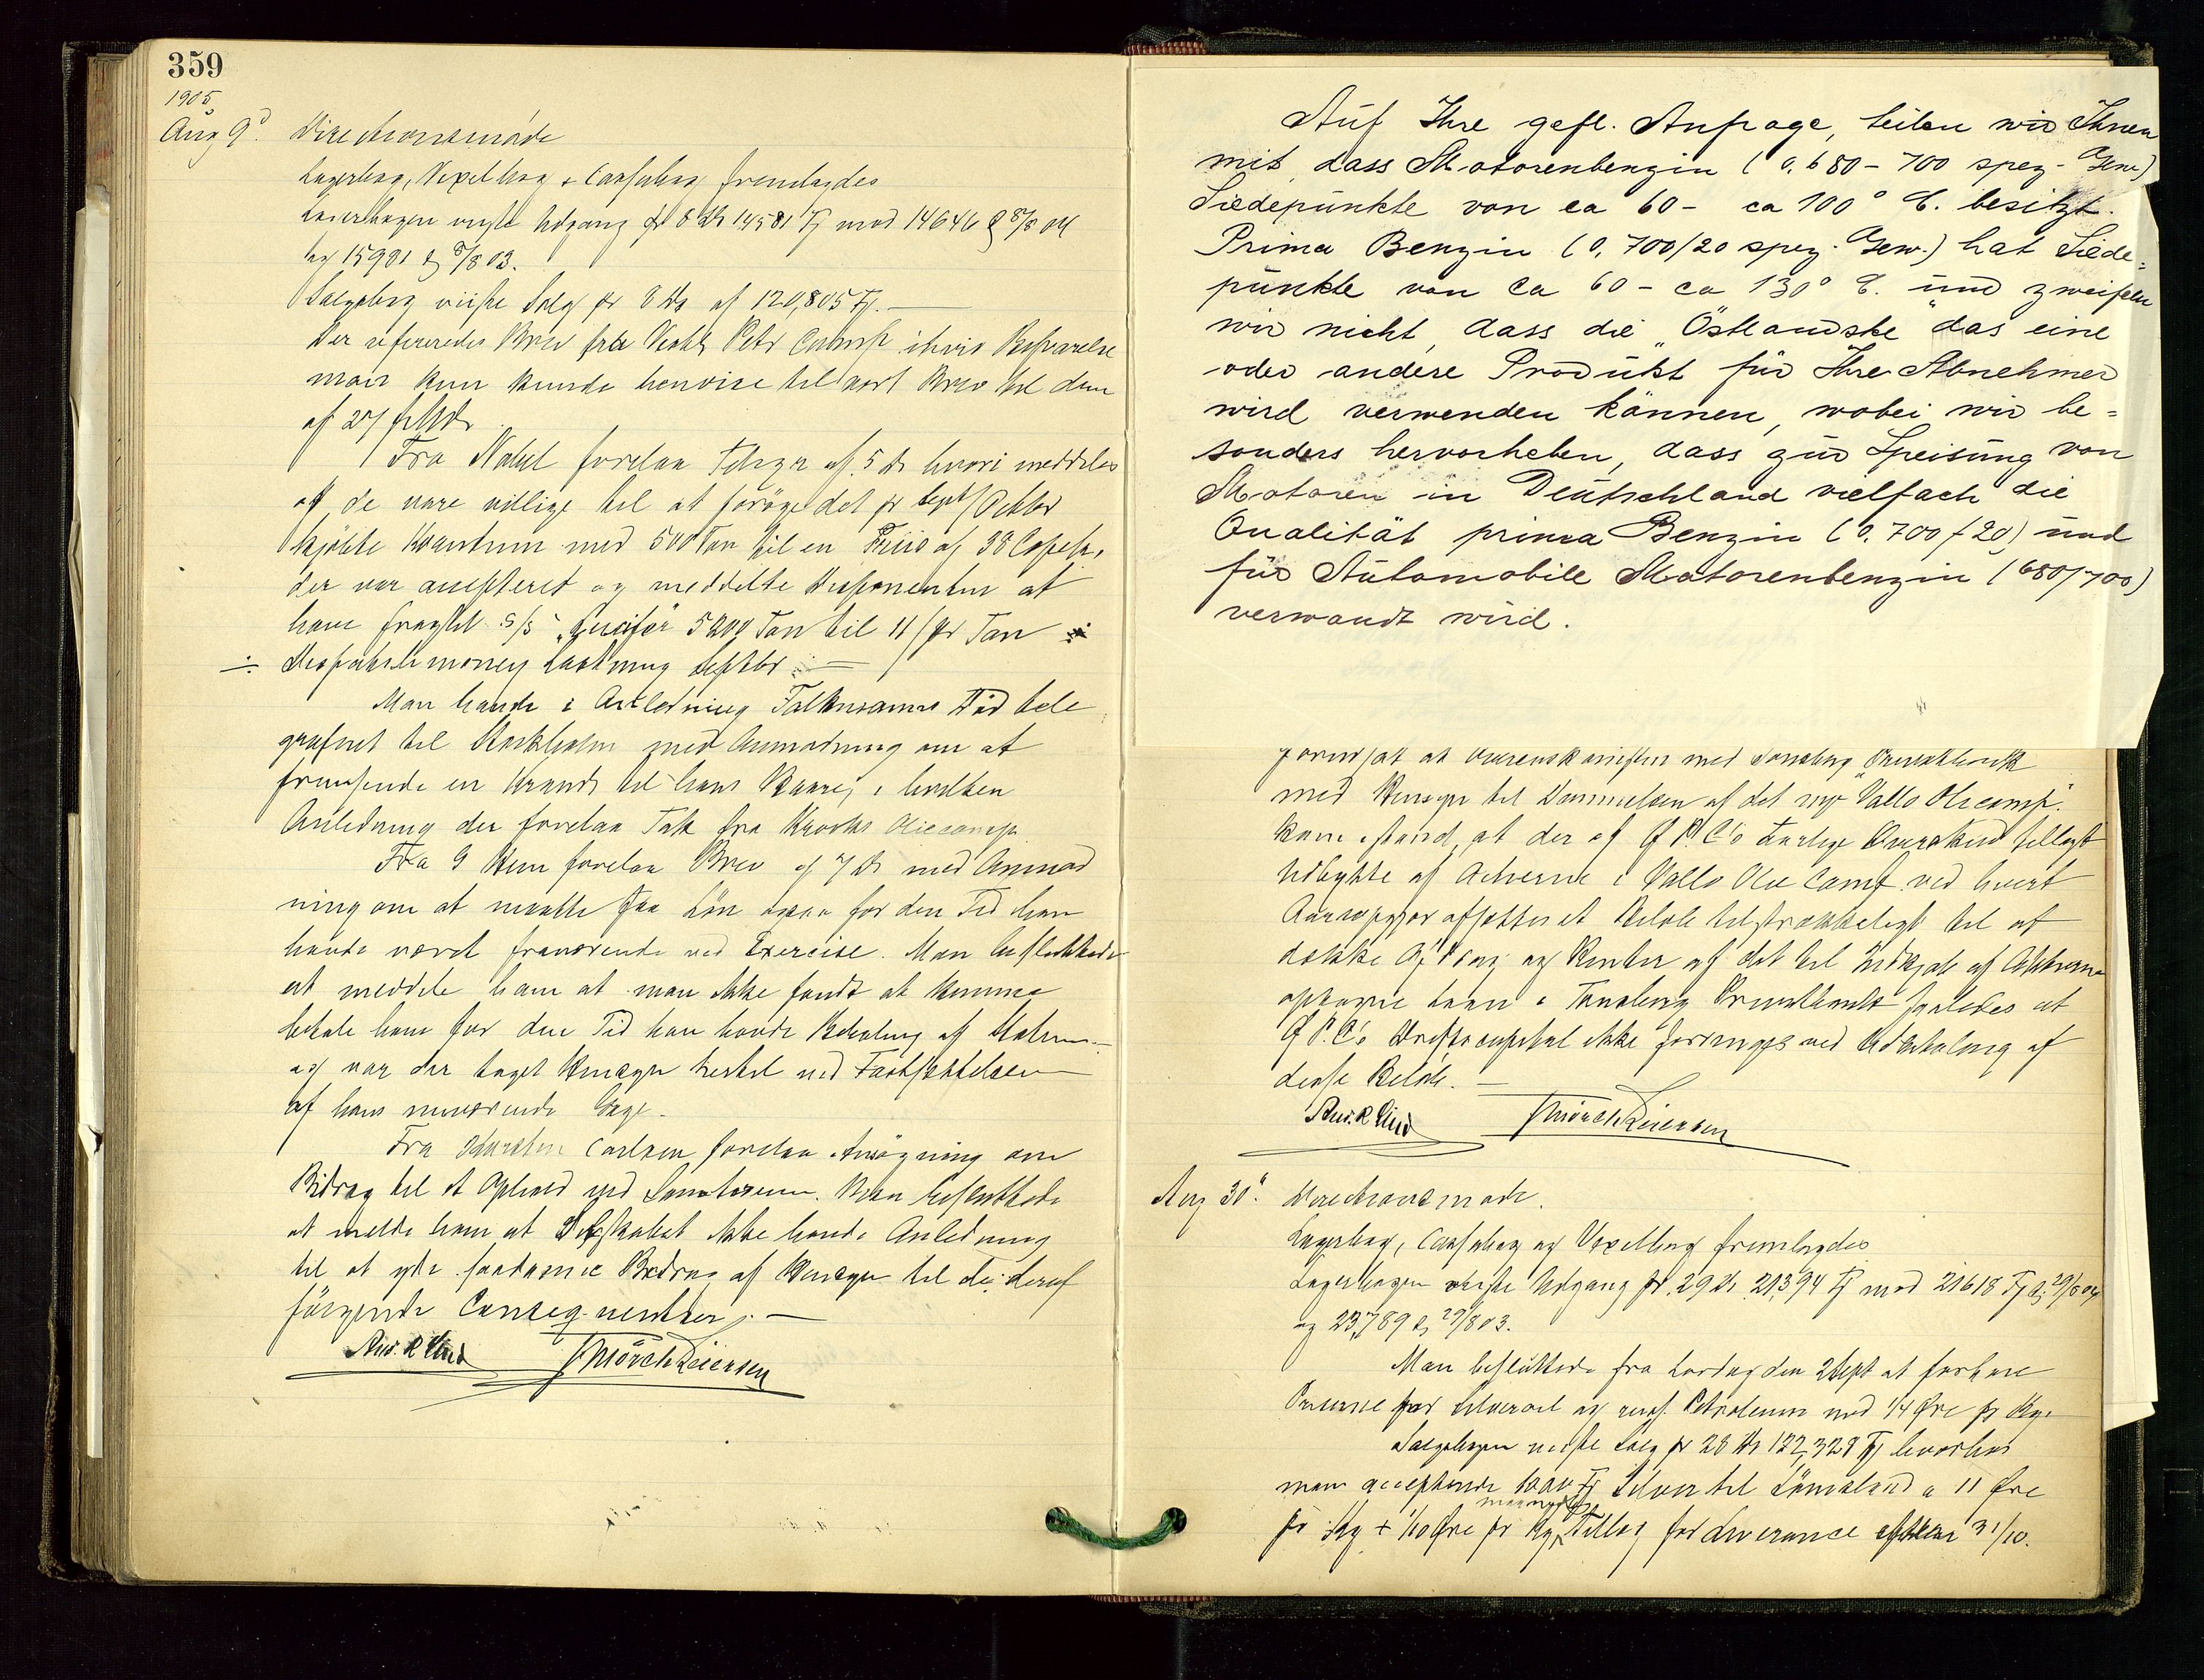 359
1905
Aug 9d. Directionsmöde
Lagerbog, Vexelbog & Cassabog fremlagdes
Lagerbogen viiste Udgang pr 8 ds 14581 Fj mod 14646 8/8 04
og 15991 8/8 03.
Salgsbog viiste Salg pr 8 ds af 120,805 Fj. —
Der refereredes Brev fra Vestl. Petr Comp. ihvis Besvarelse
man kun kunde henvise til vort Brev til dem
af 27 f. Md.
Fra Nobel forelaa Telegr af 5 ds hvori meddeles
at de vare villige til at foröge det pr Sept/Octbr
kjöbte Kvantum med 500 Ton til en Priis af 38 Copek,
der var accepteret og meddelte Disponenten at
have fragtet S/S "Lucifer" 5200 Ton til 11/ pr Ton
÷ Despatch money Lastning Septbr. —
Man havde i Anledning Falkmans Död tele
graferet til Stockholm med Anmodning om at
fremsende en Krands til hans Baare, i hvilken
Anledning der forelaa Tak fra Krooks Oliecomp.
Fra G Hem forelaa Brev af 7 ds med Anmod
ning om at maatte faa Lön ogsaa for den Tid han
havde været fraværende ved Exercise. Man besluttede
at meddele ham at man ikke fandt at kunne
betale ham for den Tid han havde Betaling af Staten —
og var der taget Hensyn hertil ved Fastsættelsen
af hans nuværende Gage.
Fra Karsten Carlsen forelaa Ansögning om
Bidrag til et Ophold ved Sanatorium. Man besluttede
at melde ham at Selskabet ikke havde Anledning
til at yde saadanne Bidrag af Hensyn til de deraf
fölgende Conseqventser. —
And. R Lind J Mörch Reiersen
Auf Ihre gefl. Anfrage, teilen wir Ihnen
mit, dass Motorenbenzin (0.680-700 spez. Gew.)
Siedepunkte von ca 60- ca 100° C. besitzt.
Prima Benzin (0,700/20 spez. Gew.) hat Siede=
punkte von ca 60 - ca 130° C. und zweifeln
wir nicht, dass die "Östlandske" das eine
oder andere Produkt für Ihre Abnehmer
wird verwenden können, wobei wir be=
sonders hervorheben, dass zur Speisung von
Motoren in Deutschland vielfach die
Qualität prima Benzin (0.700/20) und
für Automobile Motorenbenzin (680/700)
verwandt wird.
forudsat at Overenskomsten med Tønsberg Privatbank
med Hensyn til Dannelsen af det nye Vallö Oliecomp.
kom istand, at der af Ö P. C's aarlige Overskud tillagt
Udbytte af Actierne i Vallö Olie Comp. ved hvert
Aarsopgjør afsættes et Beløb tilstrækkeligt til at
dække Afdrag og Renter af det til Indkjøb af Aktierne
optagne Laan i Tønsberg Privatbank saaledes at
Ö P. C's Driftscapital ikke forringes ved Udbetaling af
disse Belöb. —
And. R Lind J Mörch Reiersen
Aug 30d. Directionsmöde.
Lagerbog, Cassabog og Vexelbog fremlagdes
Lagerbogen viiste Udgang pr 29 ds 21394 Fj mod 21618 Fj 29/8 04
og 23,789 29/8 03.
Man besluttede fra Lørdag den 2 Sept at forhøie
Priserne for Silveroil og russ. Petroleum med 1/4 Øre pr Kg.
Salgsbogen viiste Salg pr 28 ds 122,328 Fj hvorhos
man accepterede 1000 Fj Silver til Lömsland a 11 Øre
pr Kg + 1/10 Øre pr Kg maanedlig Tillæg for Leverance efter 31/10.